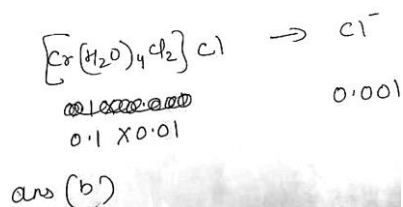 [Cr(H2O)4Cl2]Cl → Cl⁻
0.001
0.1 × 0.01
ans (b)